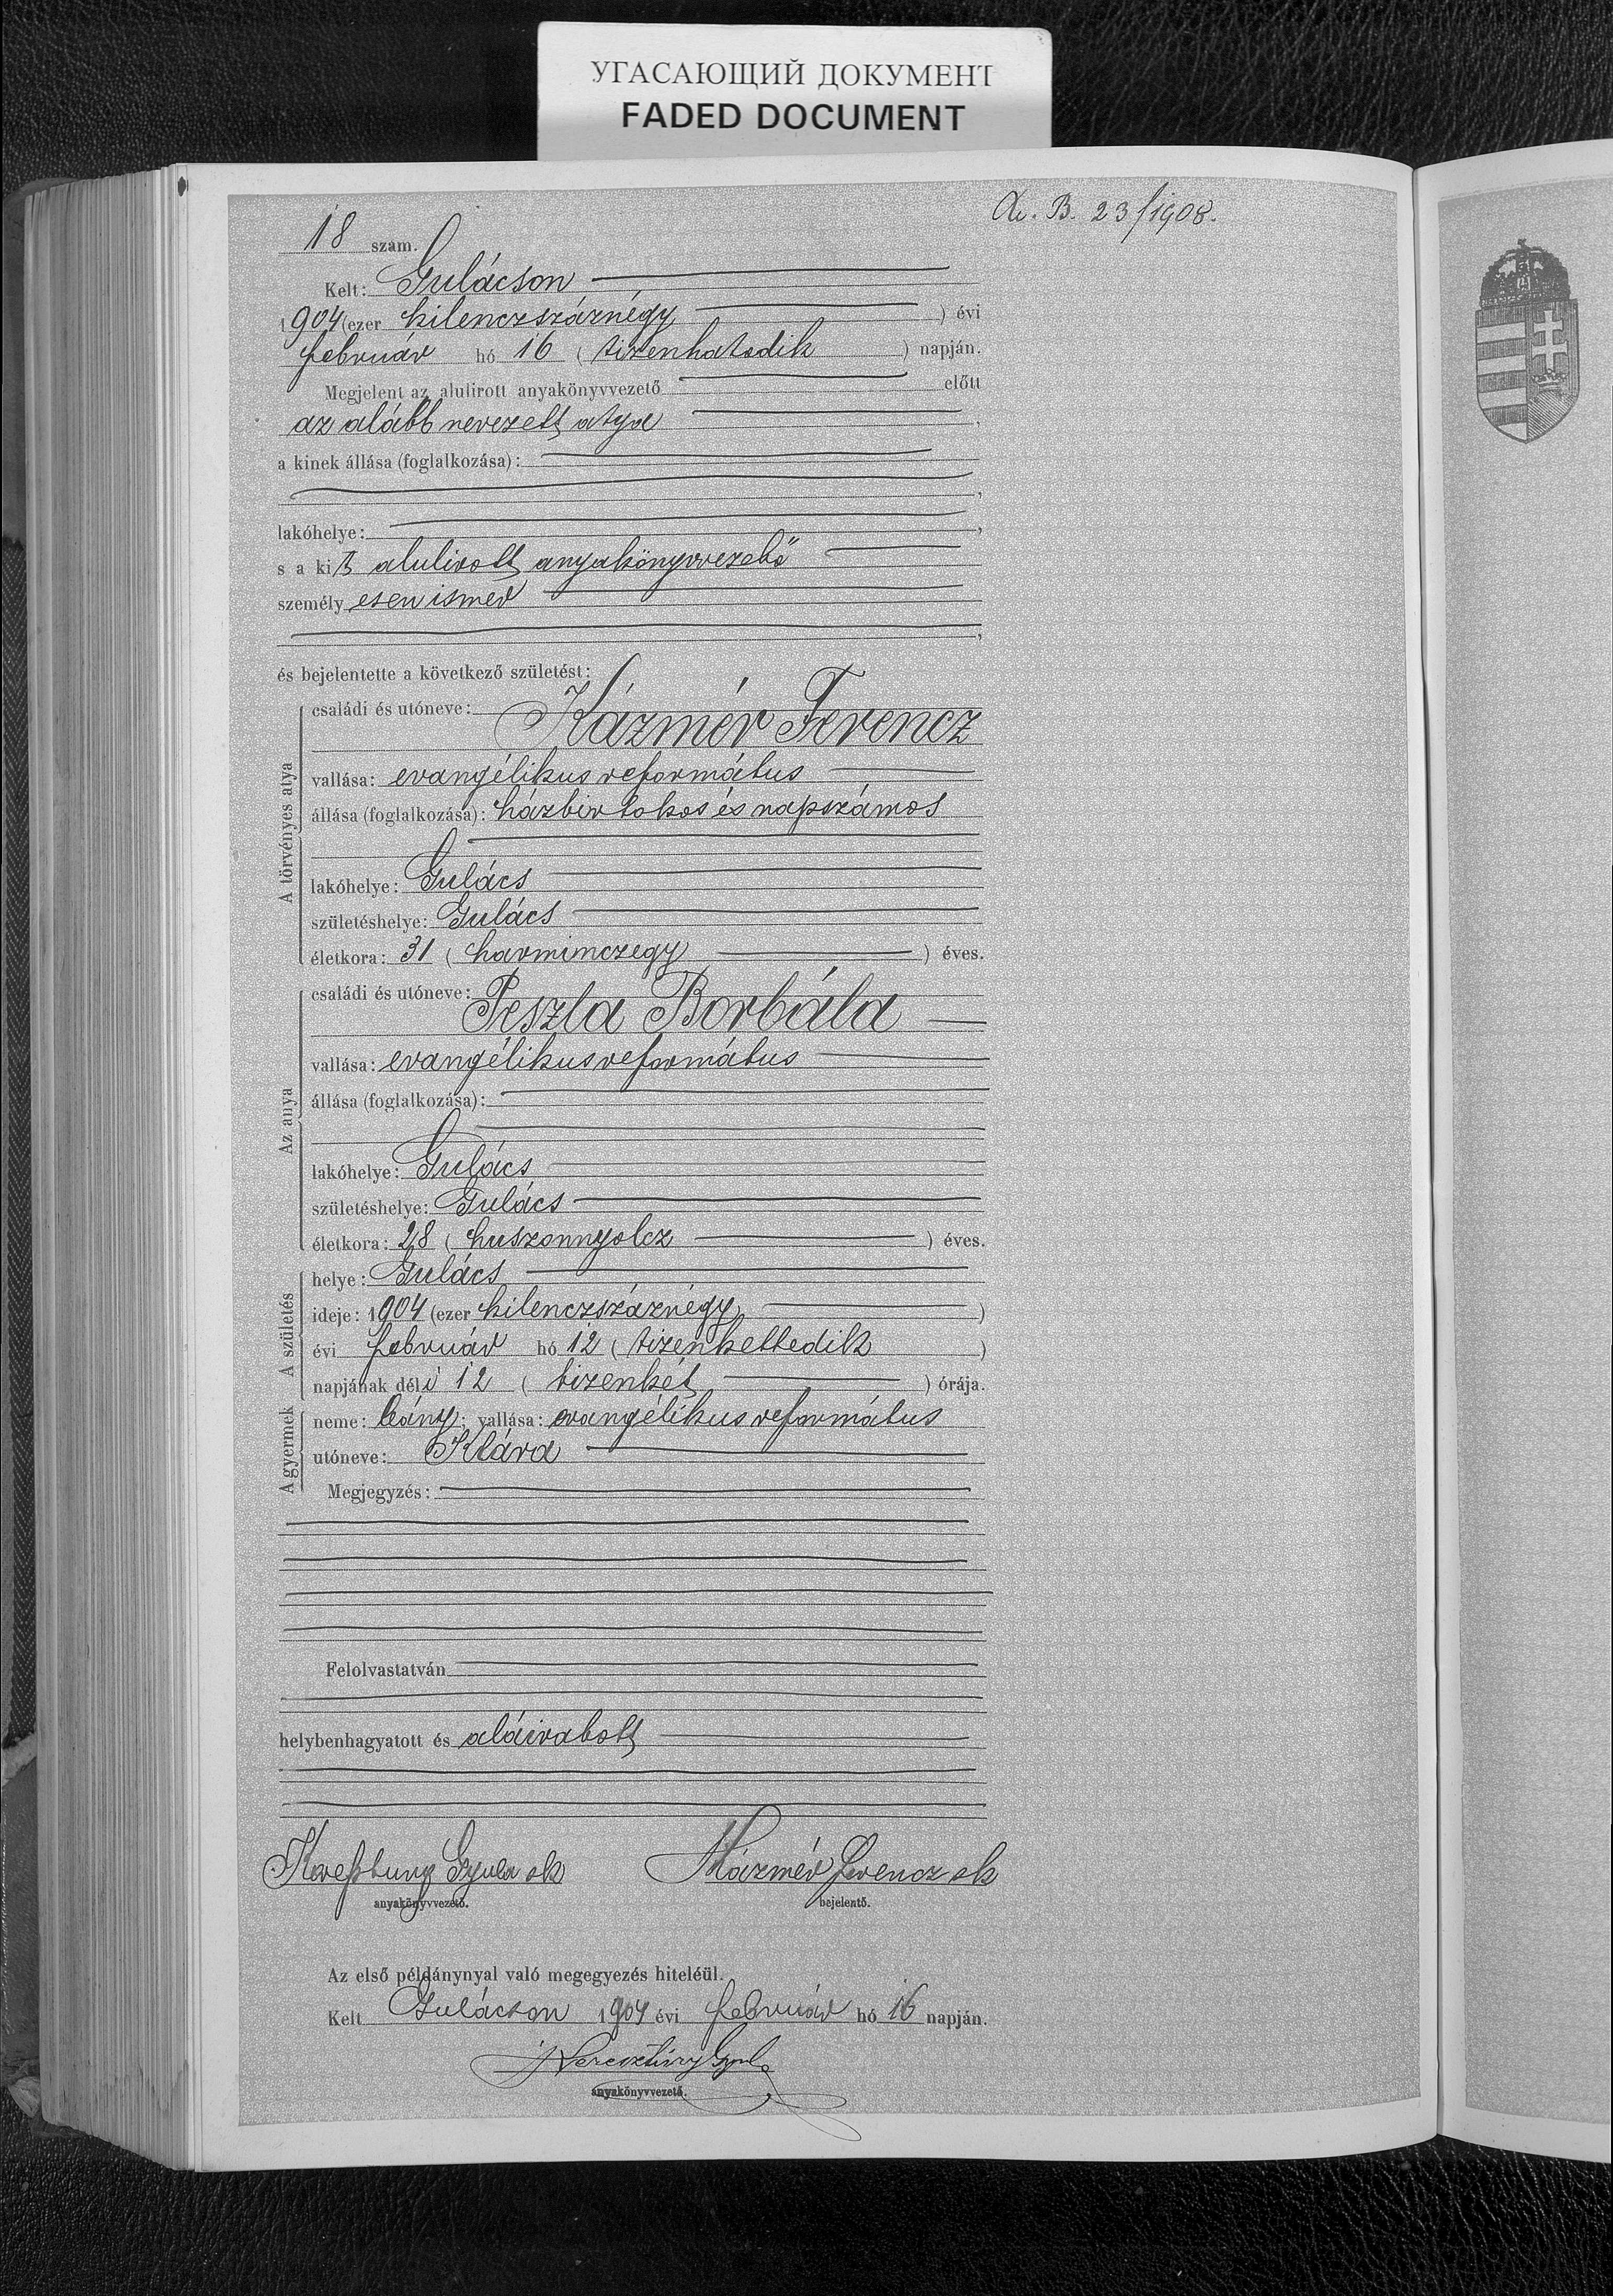 УГАСАЮЩИЙ ДОКУМЕНТ
FADED DOCUMENT
B. 23/1908.
18 szám.
Kelt: Gulácson
1904 (ezer kilenczszáznégy ) évi
február hó 16 ( tizenhatodik ) napján.
Megjelent az alulirott anyakönyvvezető előtt
az alább nevezett atya
a kinek állása (foglalkozása):
lakóhelye:
s a kit alulirott anyakönyvvezető
személy esen ismer
és bejelentette a következő születést:
A törvényes atya
családi és utóneve:
Kázmér Ferencz
vallása: evangélikus református
állása (foglalkozása): házbirtokos és napszámos
lakóhelye: Gulács
születéshelye: Gulács
életkora: 31 ( harminczegy ) éves.
Az anya
családi és utóneve:
Peszla Borbála
vallása: evangélikus református
állása (foglalkozása):
lakóhelye: Gulács
születéshelye: Gulács
életkora: 28 ( huszonnyolcz ) éves.
A születés
helye: Gulács
ideje: 1904 (ezer kilenczszáznégy )
évi február hó 12 ( tizenkettedik )
napjának déli 12 ( tizenkét ) órája.
A gyermek
neme: leány; vallása: evangélikus református
utóneve: Klára
Megjegyzés:
Felolvastatván
helybenhagyatott és aláiratott
Keresztury Gyula sk Kázmér Ferencz sk
anyakönyvvezető. bejelentő.
Az első példánynyal való megegyezés hiteléül.
Kelt Gulácson 1904 évi február hó 16 napján.
Keresztúry Gyula
anyakönyvvezető.